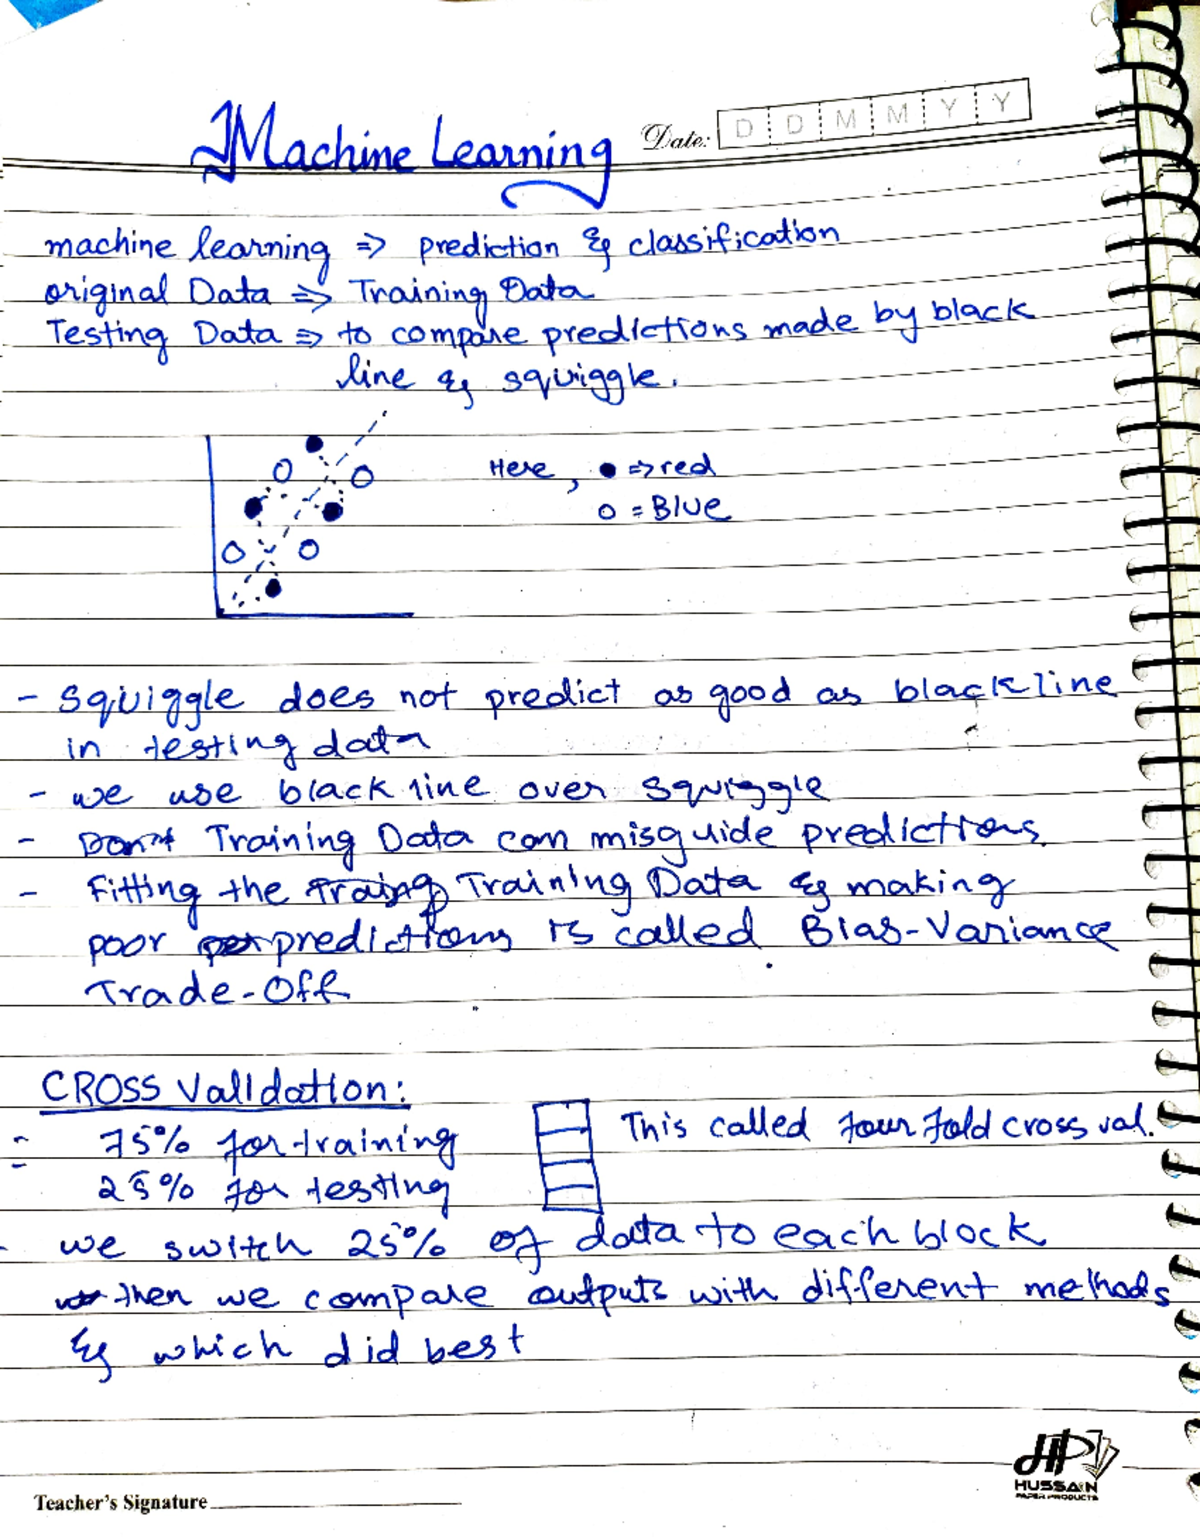 Machine Learning
Date: D D M M Y Y
machine learning => prediction & classification
original Data => Training Data
Testing Data => to compare predictions made by black
line & squiggle.
Here, ● => red
o = Blue
- Squiggle does not predict as good as black line
in testing data
- we use black line over squiggle
- Don't Training Data can misguide predictions.
- Fitting the Traing Training Data & making
poor per predictions is called Bias-Variance
Trade-Off
CROSS Validation:
75% for training
This called four fold cross val.
25% for testing
- we switch 25% of data to each block
then we compare outputs with different methods
& which did best
HP
HUSSAIN
PAPER PRODUCTS
Teacher's Signature